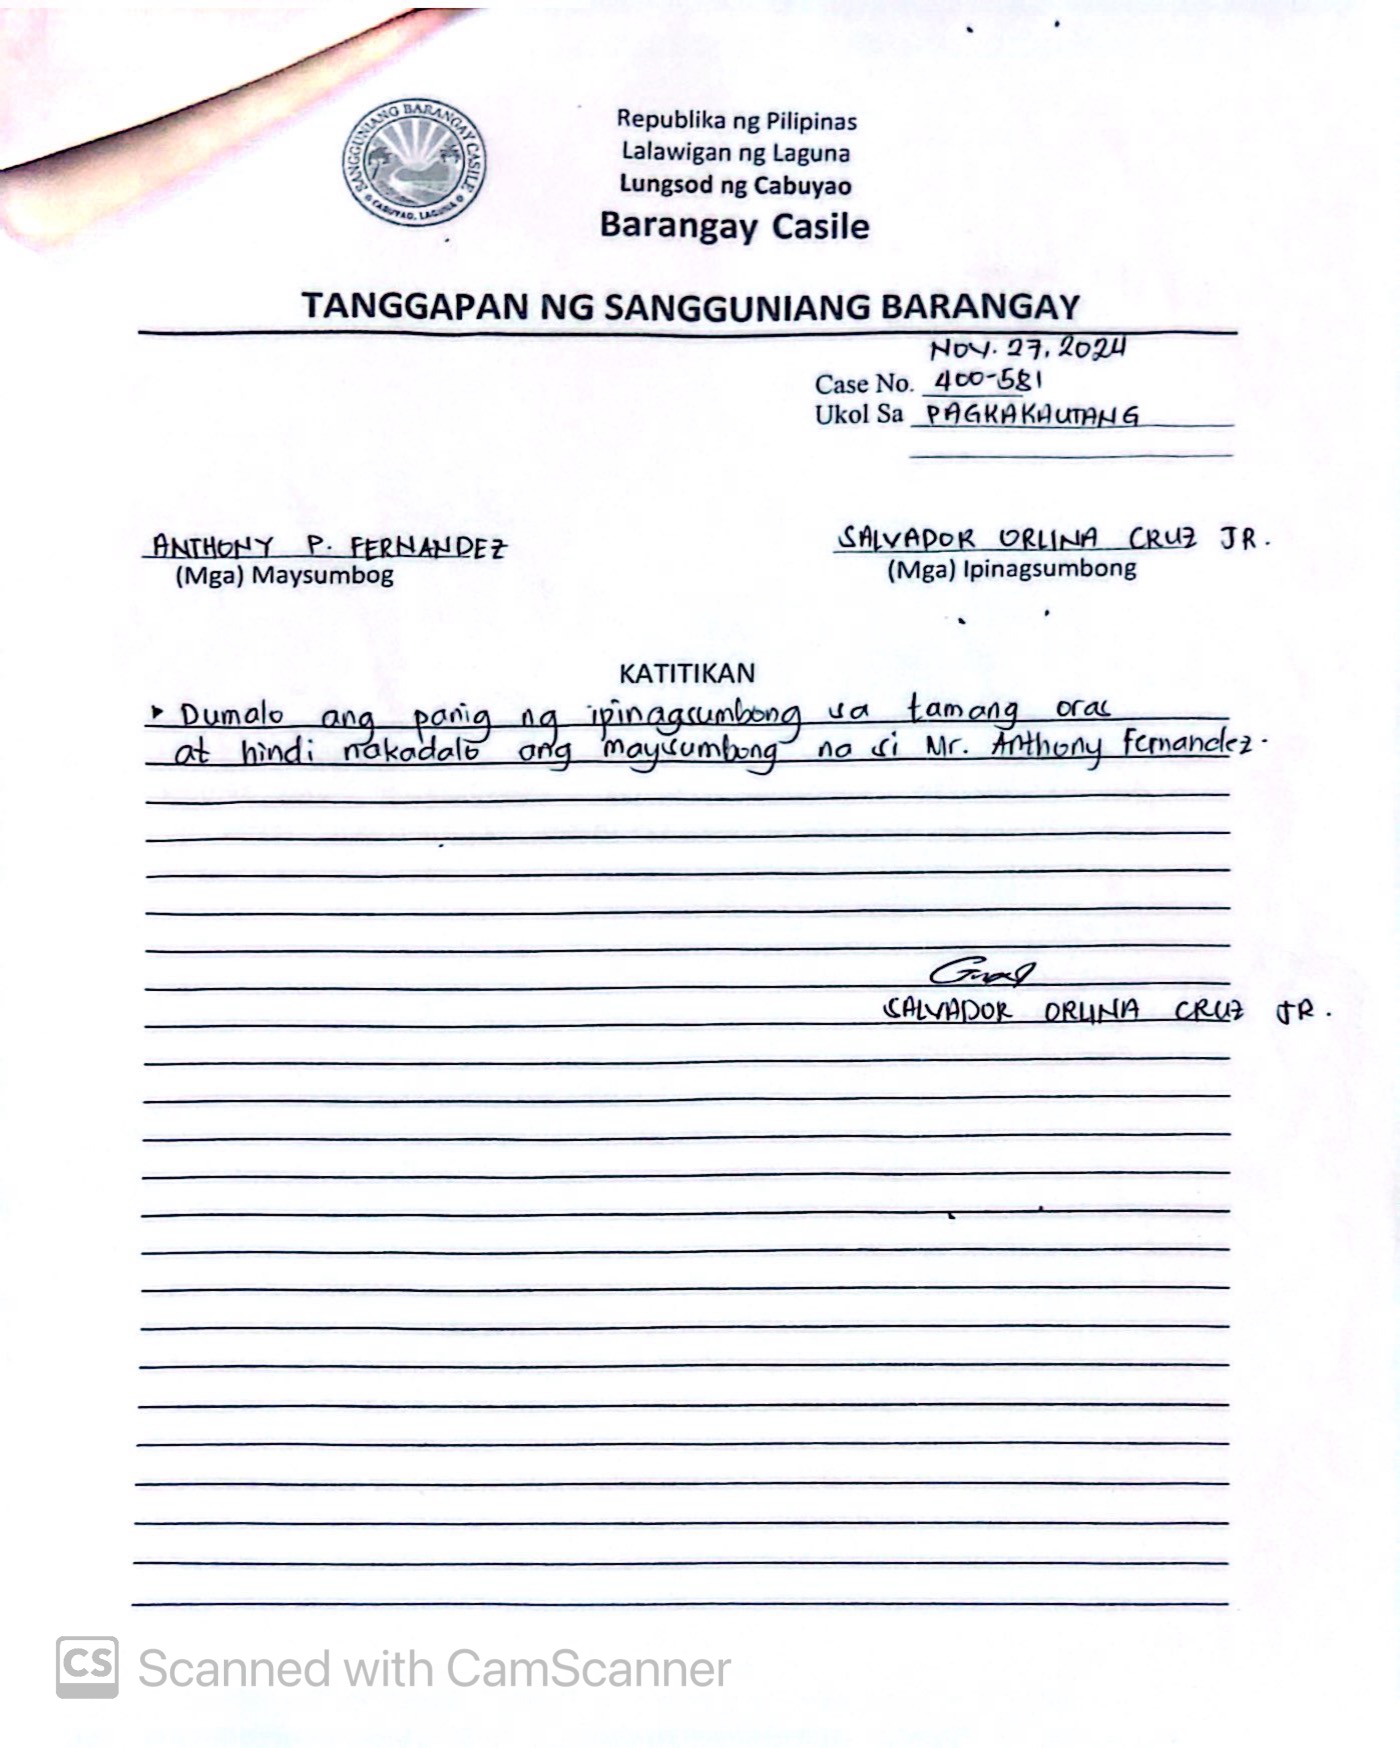 SANGGUNIANG BARANGAY CASILE
CABUYAO, LAGUNA
Republika ng Pilipinas
Lalawigan ng Laguna
Lungsod ng Cabuyao
Barangay Casile
TANGGAPAN NG SANGGUNIANG BARANGAY
NOV. 27, 2024
Case No. 400-581
Ukol Sa PAGKAKAUTANG
ANTHONY P. FERNANDEZ SALVADOR ORLINA CRUZ JR.
(Mga) Maysumbog (Mga) Ipinagsumbong
KATITIKAN
▸ Dumalo ang panig ng ipinagsumbong sa tamang oras
at hindi nakadalo ang maysumbong na si Mr. Anthony Fernandez.
SALVADOR ORLINA CRUZ JR.
CS Scanned with CamScanner